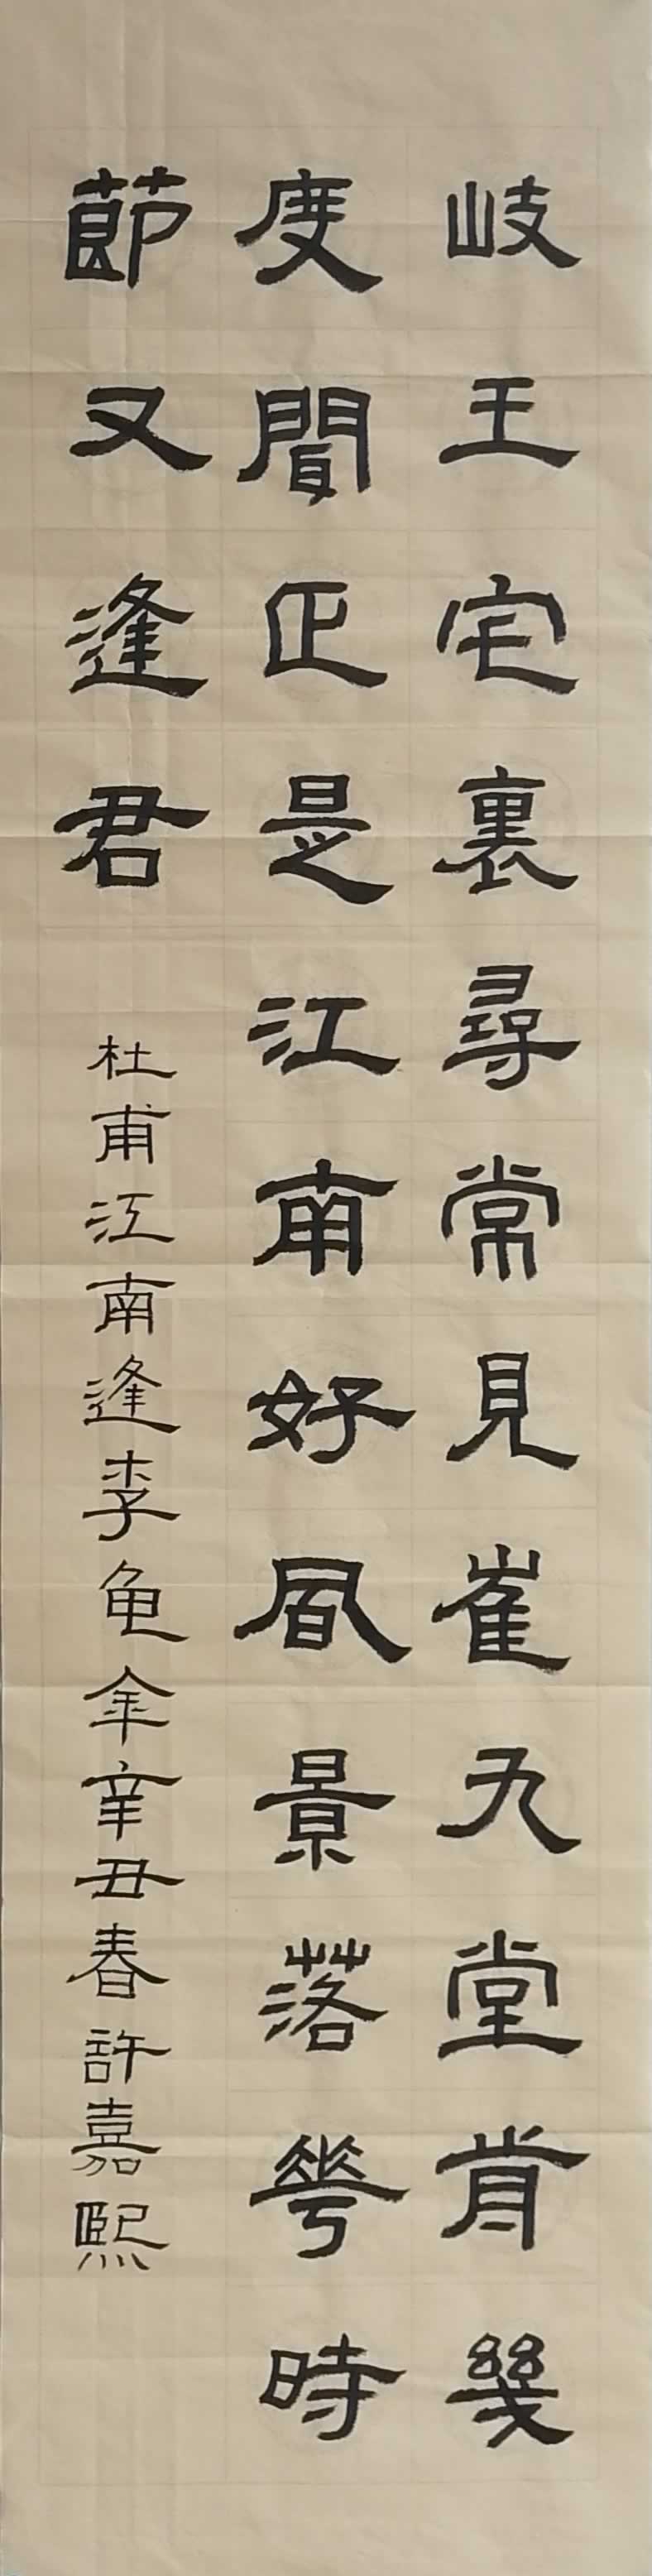 岐王宅裏尋常見崔九堂前幾
度聞正是江南好風景落花時
節又逢君
杜甫江南逢李龟年辛丑春許嘉熙